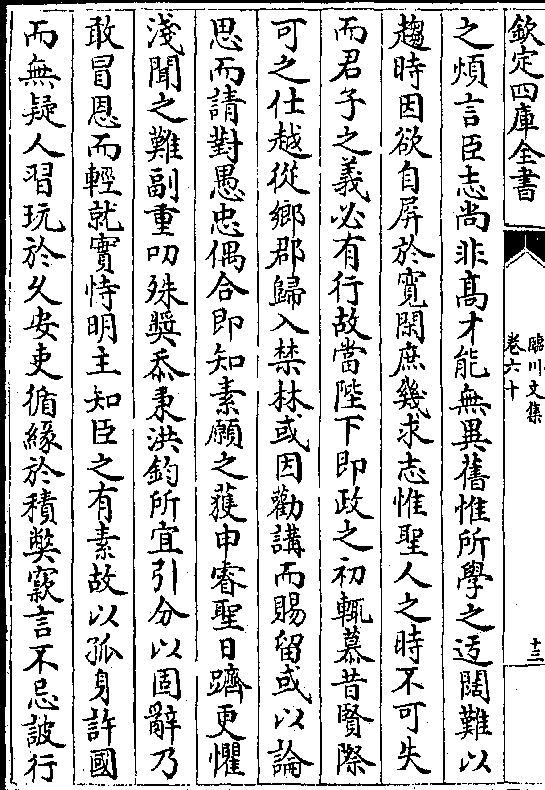 欽定四庫全書
臨川文集
卷六十
十三
之煩言臣志尚非髙才能無異舊惟所學之迂闊難以
趨時因欲自屏於寛閑庶幾求志惟聖人之時不可失
而君子之義必有行故當陛下即政之初輒慕昔賢際
可之仕越從鄉郡歸入禁林或因勸講而賜留或以論
思而請對愚忠偶合即知素願之獲申睿聖日躋更懼
淺聞之難副重叨殊奬忝秉洪鈞所宜引分以固辭乃
敢冒恩而輕就實恃明主知臣之有素故以孤身許國
而無疑人習玩於久安吏循緣於積弊竊言不忌詖行